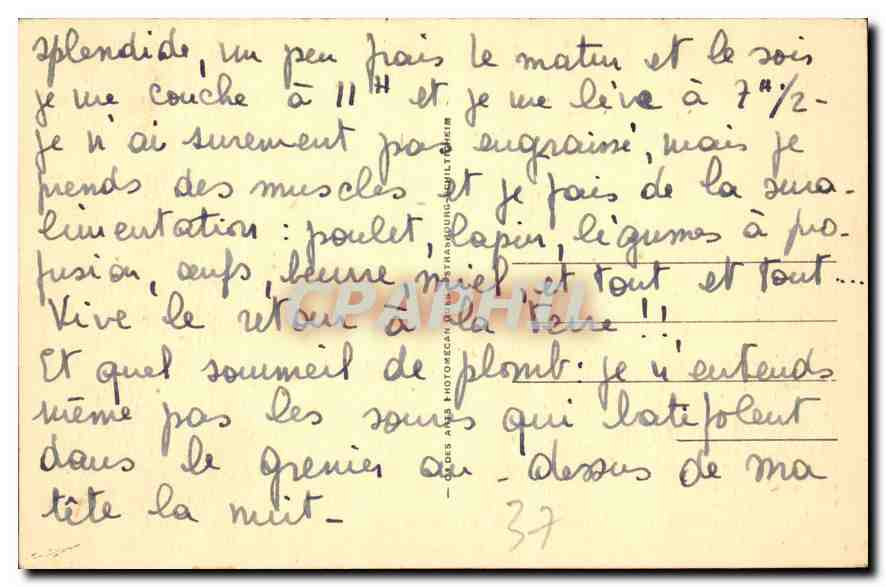 splendide, un peu frais le matin et le soir
je me couche à 11 H et je me lève à 7 H 1/2 -
je n'ai surement pas engraissé, mais je
prends des muscles et je fais de la sura-
limentation : poulet, lapin, légumes à pro-
fusion, œufs, beurre, miel, et tout et tout....
Vive le retour à la terre !!
Et quel sommeil de plomb : je n'entends
même pas les souris qui batifolent
dans le grenier au-dessus de ma
tête la nuit -
37
CPARHIL
DES ARTS PHOTOMECANIQUES STRASBOURG-SCHILTIGHEIM